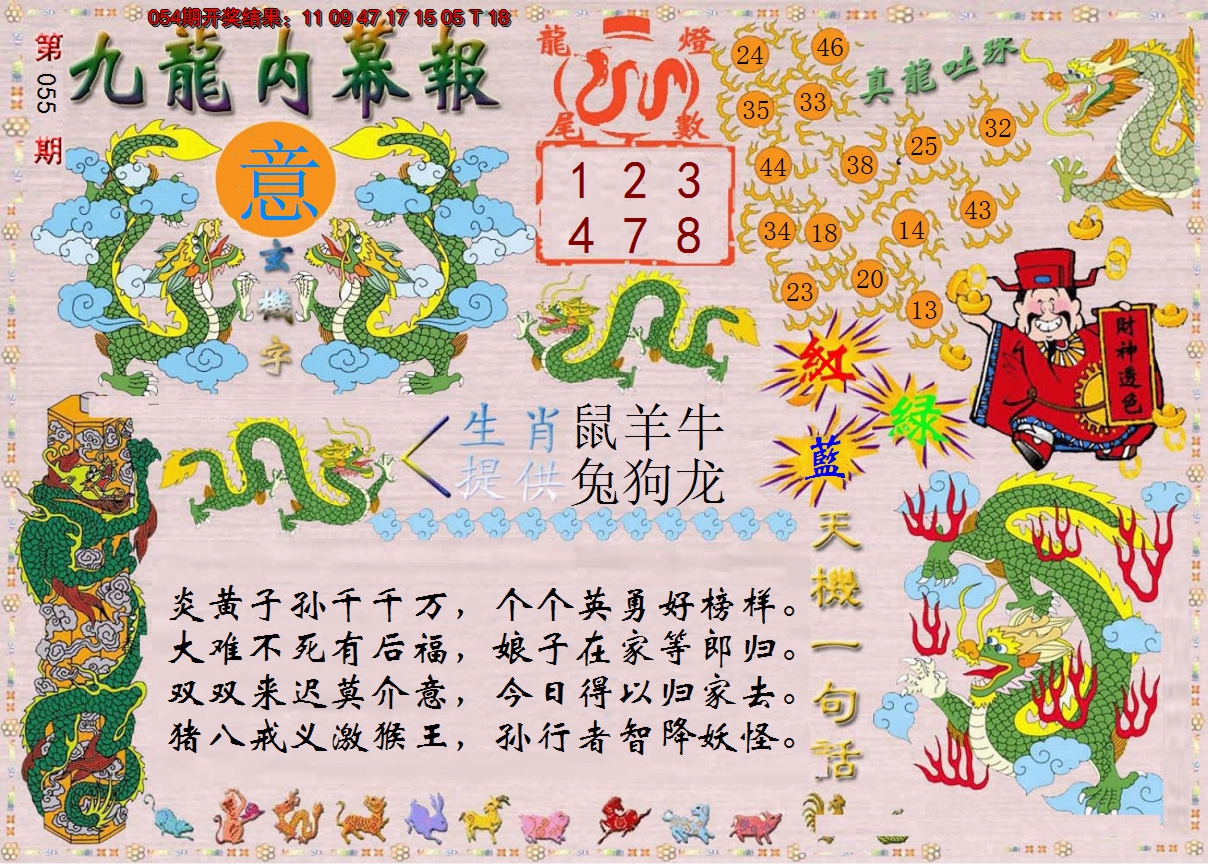 054期开奖结果：11 09 47 17 15 05 T 18
第
055
期
九龍内幕報
意
玄
機
字
龍 燈
尾 數
1 2 3
4 7 8
真龍吐珠
24
46
35
33
32
25
44
38
43
34
18
14
20
23
13
財神透色
紅
綠
藍
生肖 鼠羊牛
提供 兔狗龙
天機一句話
炎黄子孙千千万，个个英勇好榜样。
大难不死有后福，娘子在家等郎归。
双双来迟莫介意，今日得以归家去。
猪八戒义激猴王，孙行者智降妖怪。